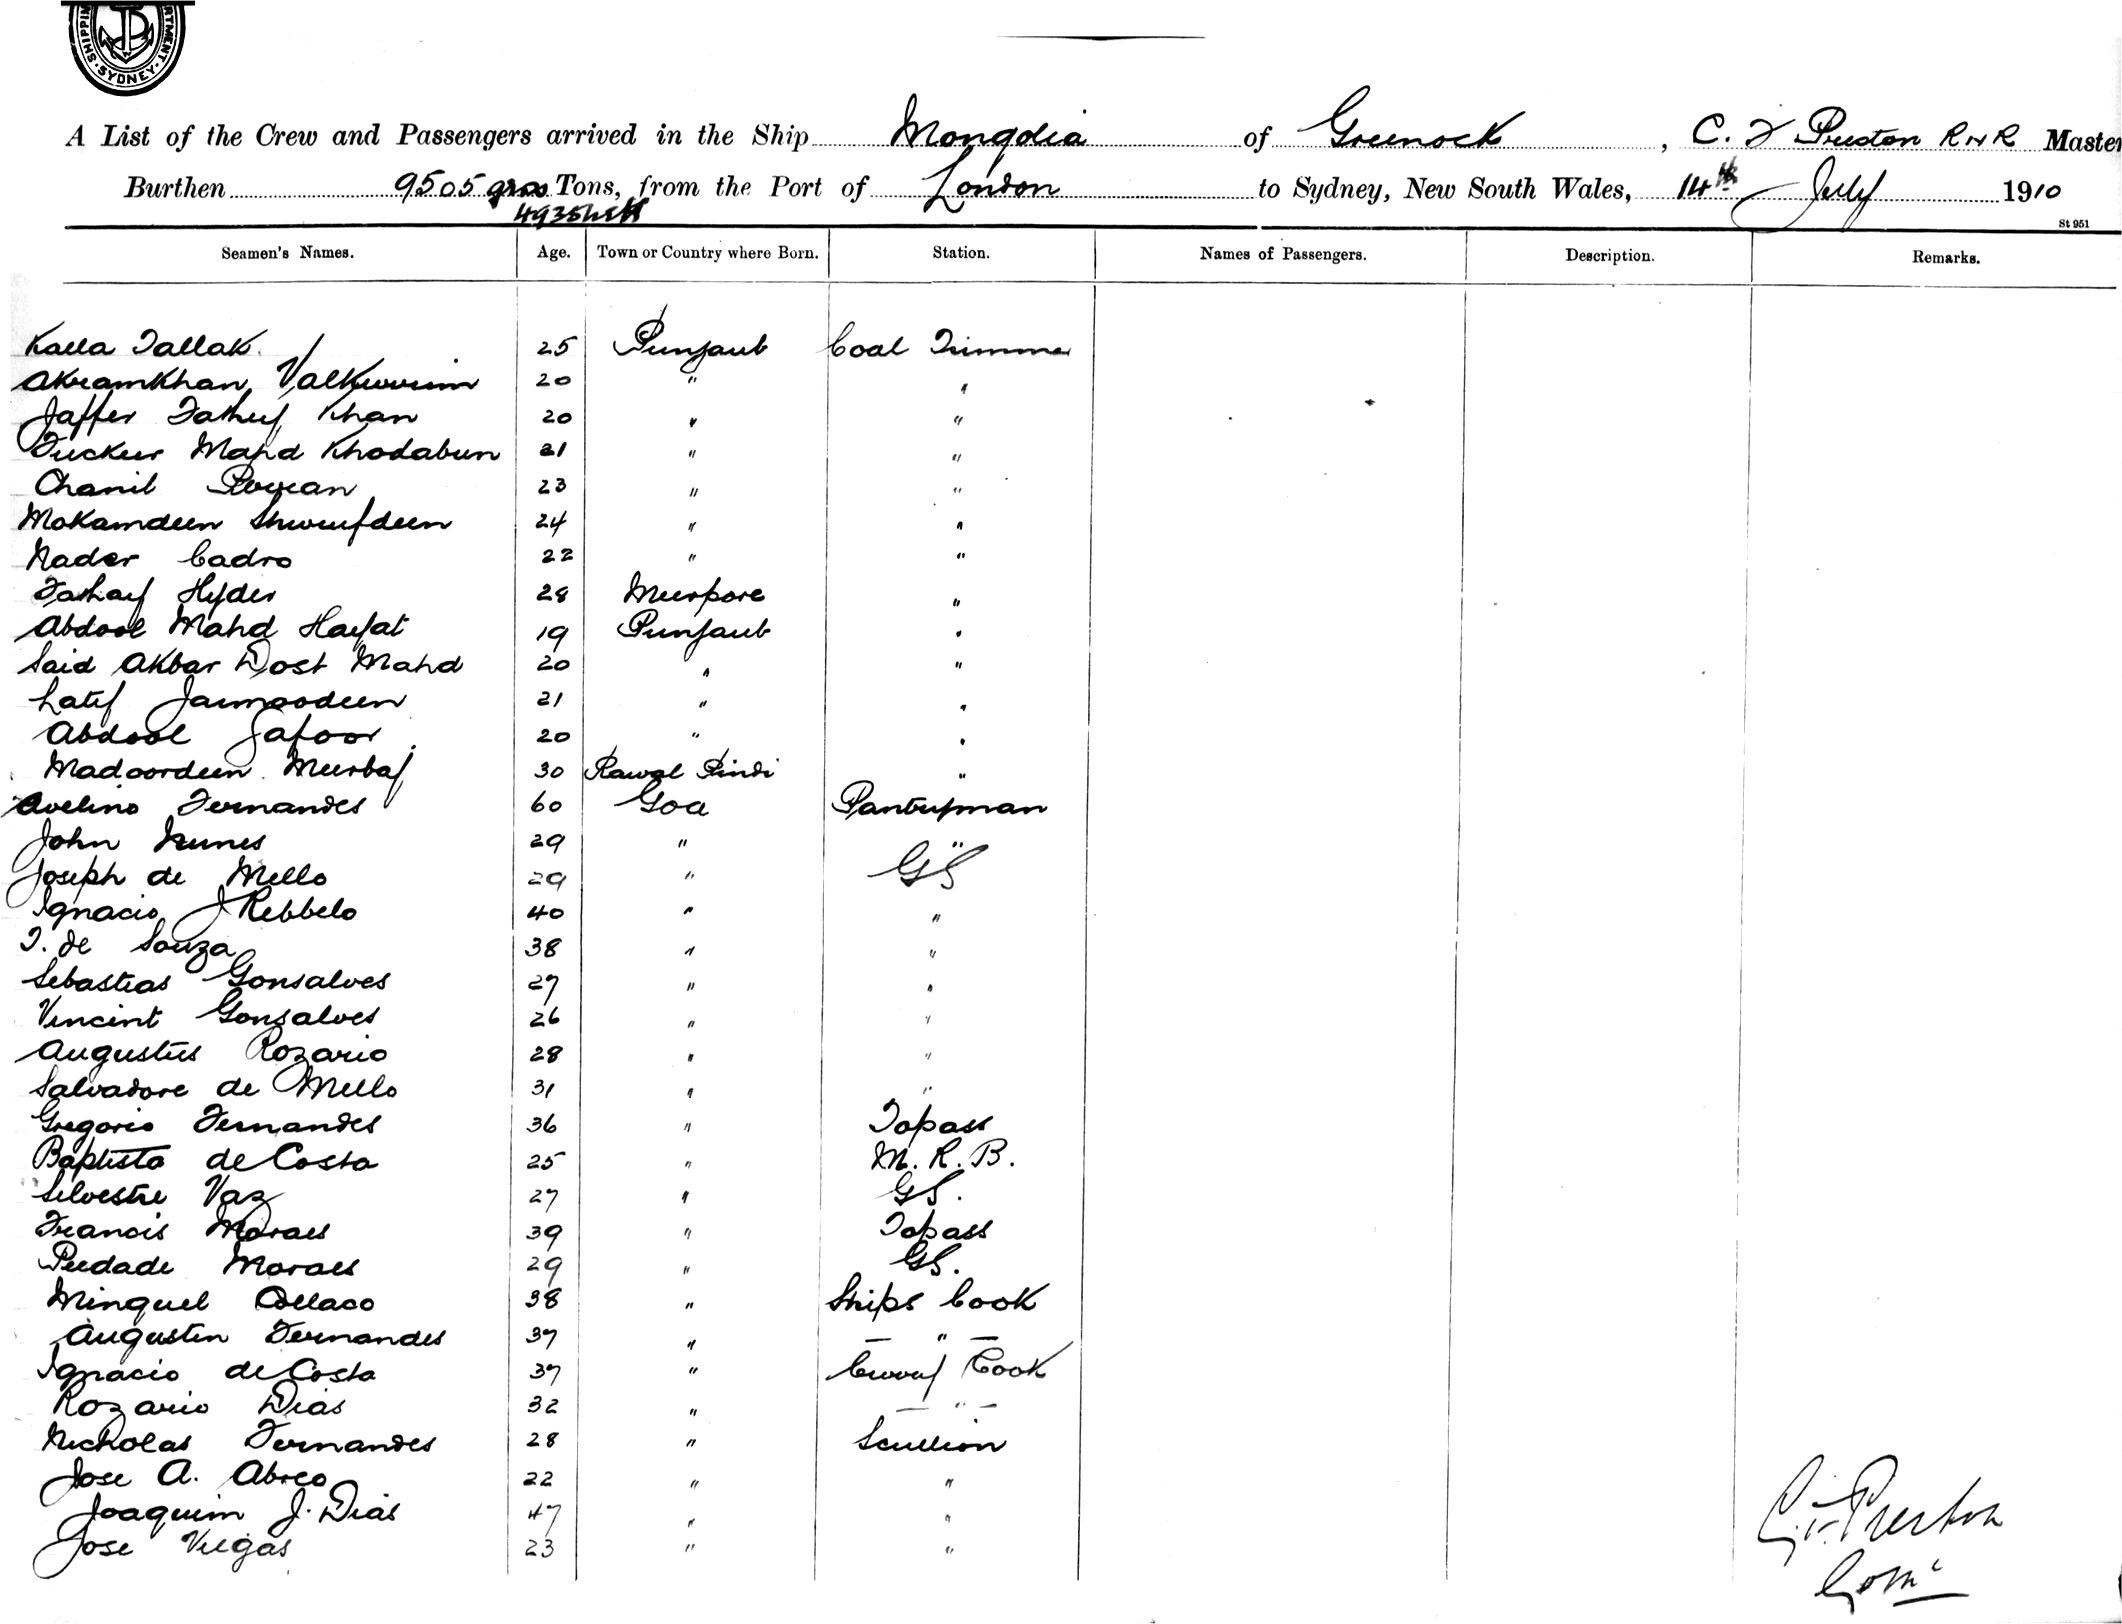 SHIPPING DEPARTMENT SYDNEY
A List of the Crew and Passengers arrived in the Ship Mongolia of Greenock, C. F Preston RNR Master
Burthen 9505 gross Tons, from the Port of London to Sydney, New South Wales, 14th July 1910
4935 nett
St 951
Seamen's Names. Age. Town or Country where Born. Station. Names of Passengers. Description. Remarks.
Kalla Fallak 25 Punjaub Coal Trimmer
Akramkhan 20 " "
Jaffer Fathey Khan 20 " "
Tuckur Mahd Khodabun 21 " "
Chanil 23 " "
Mokamdeen 24 " "
Nader Cadro 22 " "
Hyder 28 Meerpore "
Abdool Mahd Hayat 19 Punjaub "
Said Akbar Dost Mahd 20 " "
Latif 21 " "
Abdool Gafoor 20 " "
Madoordeen Meerbaj 30 Rawal Pindi "
Avelino Fernandes 60 Goa Pantryman
John Nunes 29 " "
Joseph de Mello 29 " GS
Ignacio J Rebbelo 40 " "
J. de Souza 38 " "
Sebastias Gonsalves 27 " "
Vincint Gonsalves 26 " "
Augustus Rozario 28 " "
Salvadore de Mello 31 " "
Gregorio Fernandes 36 " Topass
Baptista de Costa 25 " M. R. B.
Silvestre Vaz 27 " GS.
Francis Moraes 39 " Topass
Piedade Moraes 29 " GS.
Minguel Collaco 38 " Ships Cook
Augustin Fernandes 37 " — " —
Ignacio de Costa 37 " Crew Cook
Rozario Dias 32 " — " —
Nicholas Fernandes 28 " Scullion
Jose A. Abreo 22 " "
Joaquim J. Dias 47 " "
Jose Viegas 23 " "
C. F. Preston
Comr